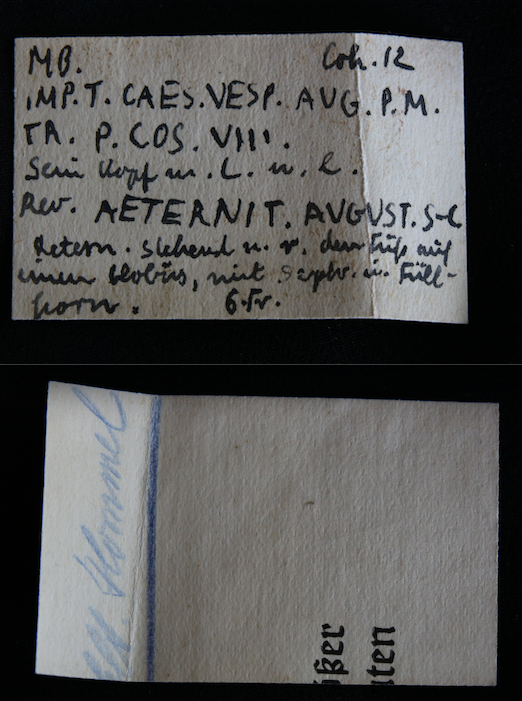 MB. Coh. 12
IMP. T. CAES. VESP. AUG. P. M.
TR. P. COS. VIII.
Sein Kopf m. L. n. l.
Rev. AETERNIT. AUGVST. S-C
Aetern. stehend n. r. den Fuß auf
einen Globus, mit Septr. u. Füll-
horn. 6 Fr.
Hommel
ßer
ten